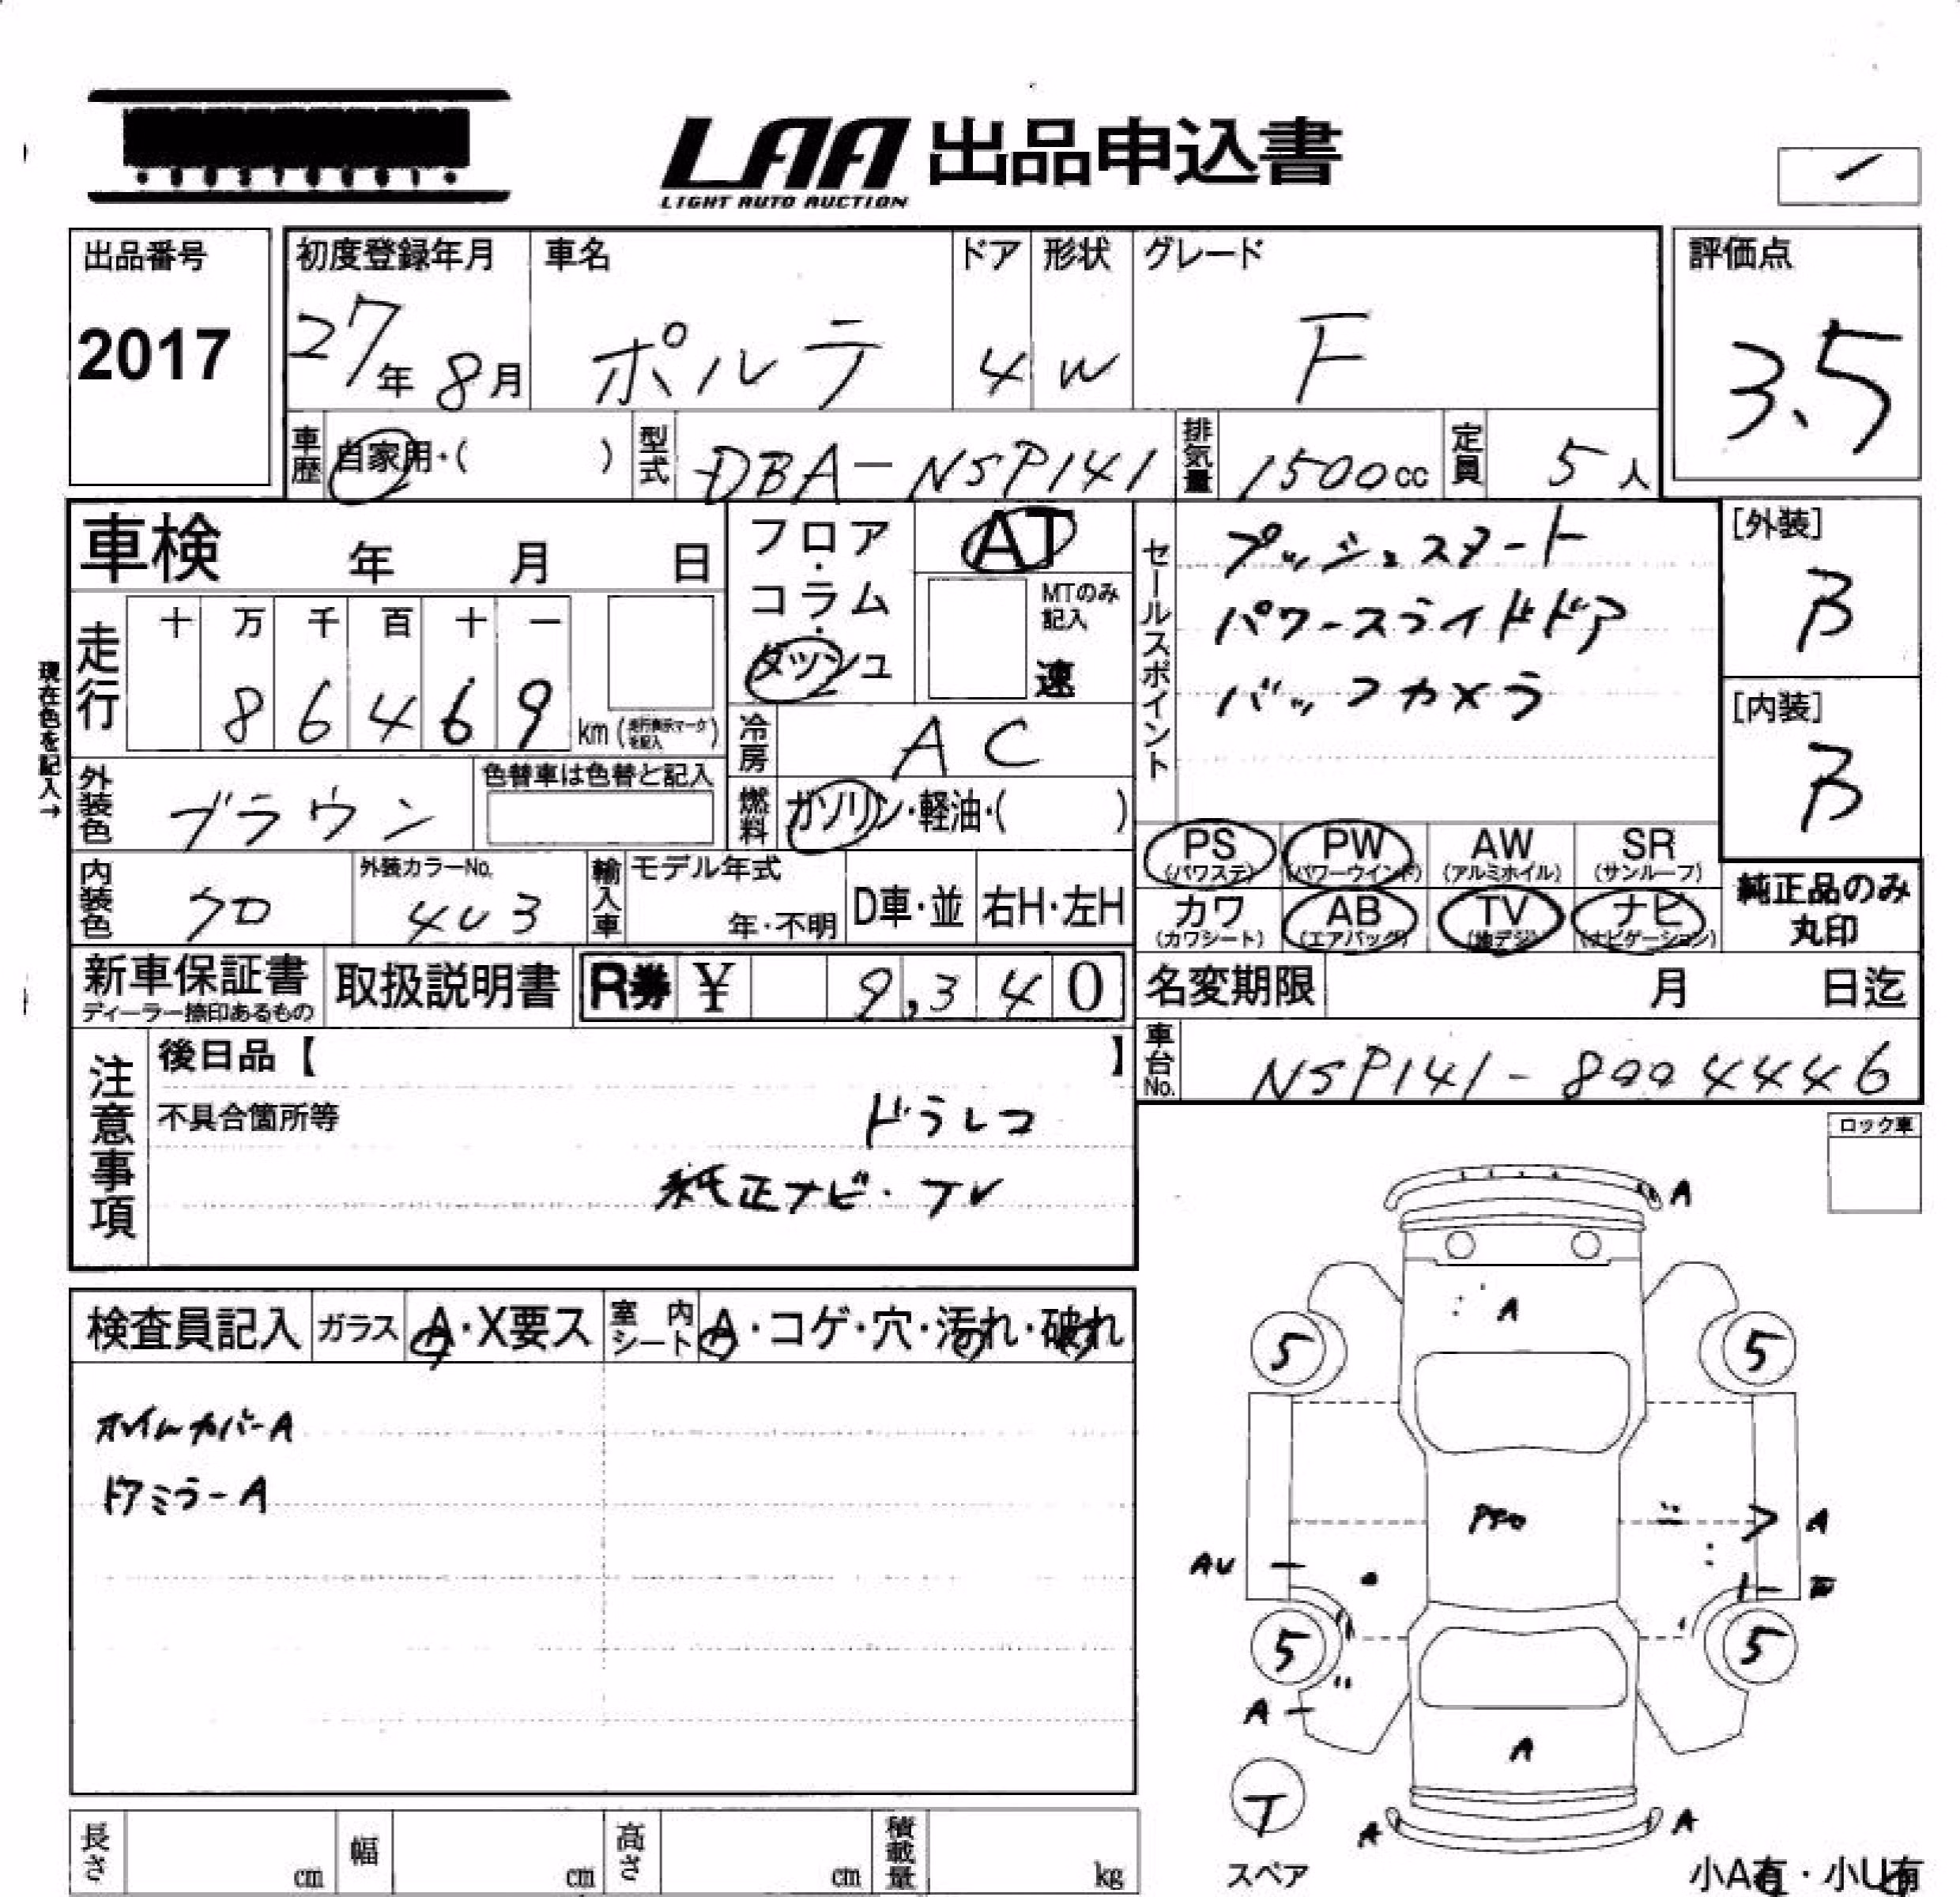 LAA 出品申込書
LIGHT AUTO AUCTION
出品番号
2017
初度登録年月
27年 8月
車名
ポルテ
ドア
4
形状
W
グレード
F
評価点
3.5
車歴 自家用・( )
型式 DBA-NSP141
排気量 1500cc
定員 5人
車検 年 月 日
フロア・コラム・ダッシュ
AT
MTのみ記入
速
セールスポイント
プッシュスタート
パワースライドドア
バックカメラ
[外装]
B
[内装]
B
現在色を記入→
走行
十 万 千 百 十 一
8 6 4 6 9 km
冷房 AC
外装色 ブラウン
色替車は色替と記入
燃料 ガソリン・軽油・( )
内装色 クロ
外装カラーNo. 4U3
輸入車 モデル年式 年・不明
D車・並 右H・左H
PS (パワステ)
PW (パワーウインド)
AW (アルミホイル)
SR (サンルーフ)
カワ (カワシート)
AB (エアバッグ)
TV (地デジ)
ナビ (ナビゲーション)
純正品のみ丸印
新車保証書
ディーラー捺印あるもの
取扱説明書
R券 ¥ 9,340
名変期限 月 日迄
車台No. NSP141-8004446
注意事項
後日品【 】
不具合箇所等
ドラレコ
純正ナビ・TV
ロック車
検査員記入 ガラス A・X要ス 室内シート A・コゲ・穴・汚れ・破れ
ホイルカバーA
ドアミラーA
A
A
5 5
A
AU
5 5
A
A
T
スペア
A A
長さ cm 幅 cm 高さ cm 積載量 kg
小A有・小U有